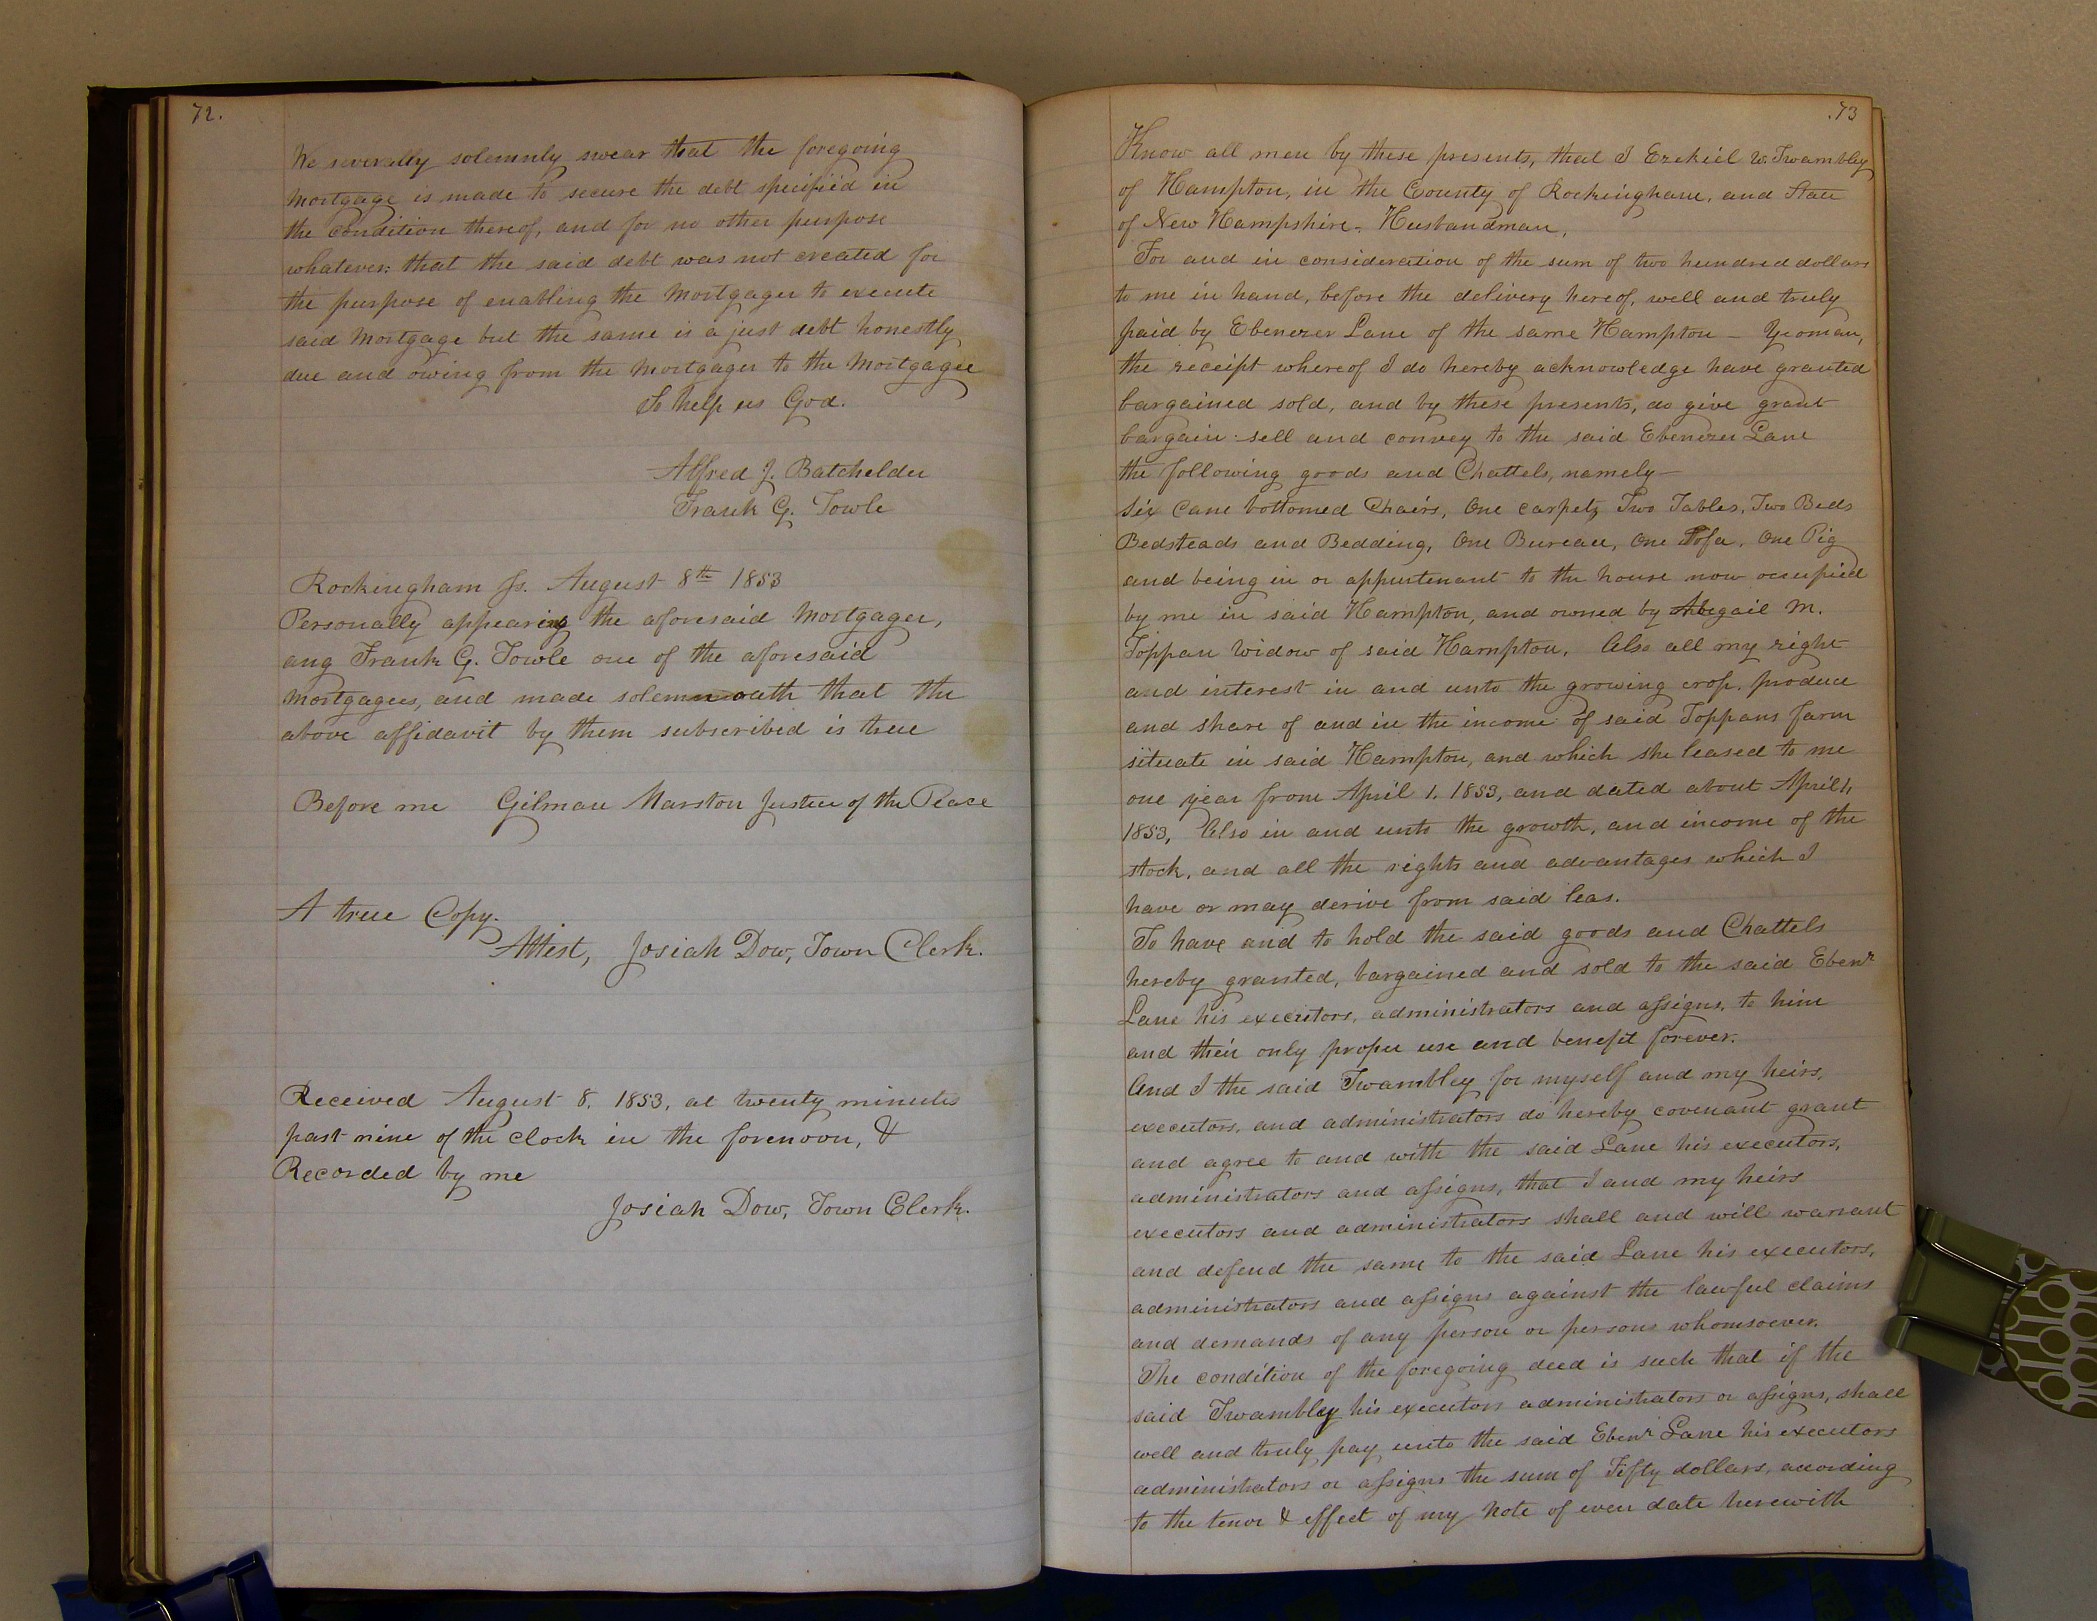 72.
We severally solemnly swear that the foregoing
Mortgage is made to secure the debt specified in
the Condition thereof, and for no other purpose
whatever: that the said debt was not created for
the purpose of enabling the Mortgager to execute
said Mortgage but the same is a just debt honestly
due and owing from the Mortgager to the Mortgagee
So help us God.
Alfred J. Batchelder
Frank G. Towle
Rockingham Ss. August 8th 1853
Personally appearing the aforesaid Mortgager,
ang Frank G. Towle one of the aforesaid
Mortgagees, and made solemn oath that the
above affidavit by them subscribed is true
Before me Gilman Marston Justice of the Peace
A true Copy.
Attest, Josiah Dow, Town Clerk.
Received August 8, 1853, at twenty minutes
past nine of the clock in the forenoon, &
Recorded by me
Josiah Dow, Town Clerk.
73
Know all men by these presents, that I Ezekiel W. Twambley
of Hampton, in the County of Rockingham, and State
of New Hampshire. Husbandman,
For and in consideration of the sum of two hundred dollars
to me in hand, before the delivery hereof, well and truly
paid by Ebenezer Lane of the same Hampton – Yeoman,
the receipt whereof I do hereby acknowledge have granted
bargained sold, and by these presents, do give grant
bargain sell and convey to the said Ebenezer Lane
the following goods and Chattels, namely–
Six Cane bottomed Chairs, One carpet, Two Tables, Two Beds
Bedsteads and Bedding, One Bureau, One Sofa, One Pig
and being in or appurtenant to the house now occupied
by me in said Hampton, and owned by Abigail M.
Toppan Widow of said Hampton. Also all my right
and interest in and unto the growing crop, produce
and share of and in the income of said Toppans farm
situate in said Hampton, and which she leased to me
one year from April 1, 1853, and dated about April 1,
1853, Also in and unto the growth, and income of the
stock, and all the rights and advantages which I
have or may derive from said leas.
To have and to hold the said goods and Chattels
hereby granted, bargained and sold to the said Ebenr
Lane his executors, administrators and assigns, to him
and their only proper use and benefit forever.
And I the said Twambley for myself and my heirs,
executors, and administrators do hereby covenant grant
and agree to and with the said Lane his executors,
administrators and assigns, that I and my heirs
executors and administrators shall and will warrant
and defend the same to the said Lane his executors,
administrators and assigns against the lawful claims
and demands of any person or persons whomsoever.
The condition of the foregoing deed is such that if the
said Twambley his executors administrators or assigns, shall
well and truly pay unto the said Ebenr Lane his executors
administrators or assigns the sum of Fifty dollars, according
to the tenor & effect of my note of even date herewith